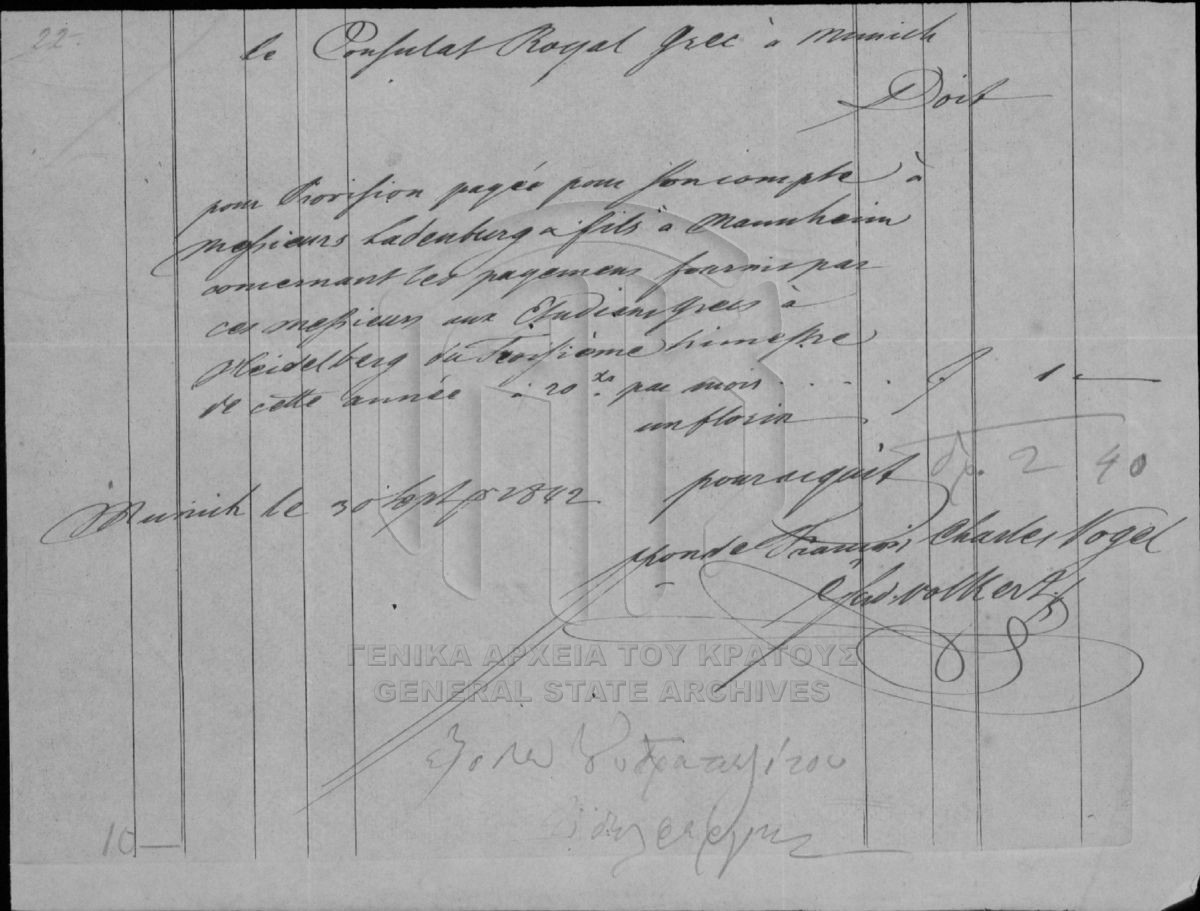 22
le Consulat Royal Grec à Munich
Doit
pour Provision payée pour son compte à
Messieurs Ladenburg & fils à Mannheim
concernant les payemens fournis par
ces messieurs aux Etudians grecs à
Heidelberg du Troisième trimestre
de cette année à 20 xr par mois . . . . f 1 —
un florin
pour acquit δρ. 2 40
Munich le 30 Sept 1842
pron de François Charles Vogel
Volkert
ΓΕΝΙΚΑ ΑΡΧΕΙΑ ΤΟΥ ΚΡΑΤΟΥΣ
GENERAL STATE ARCHIVES
10 —